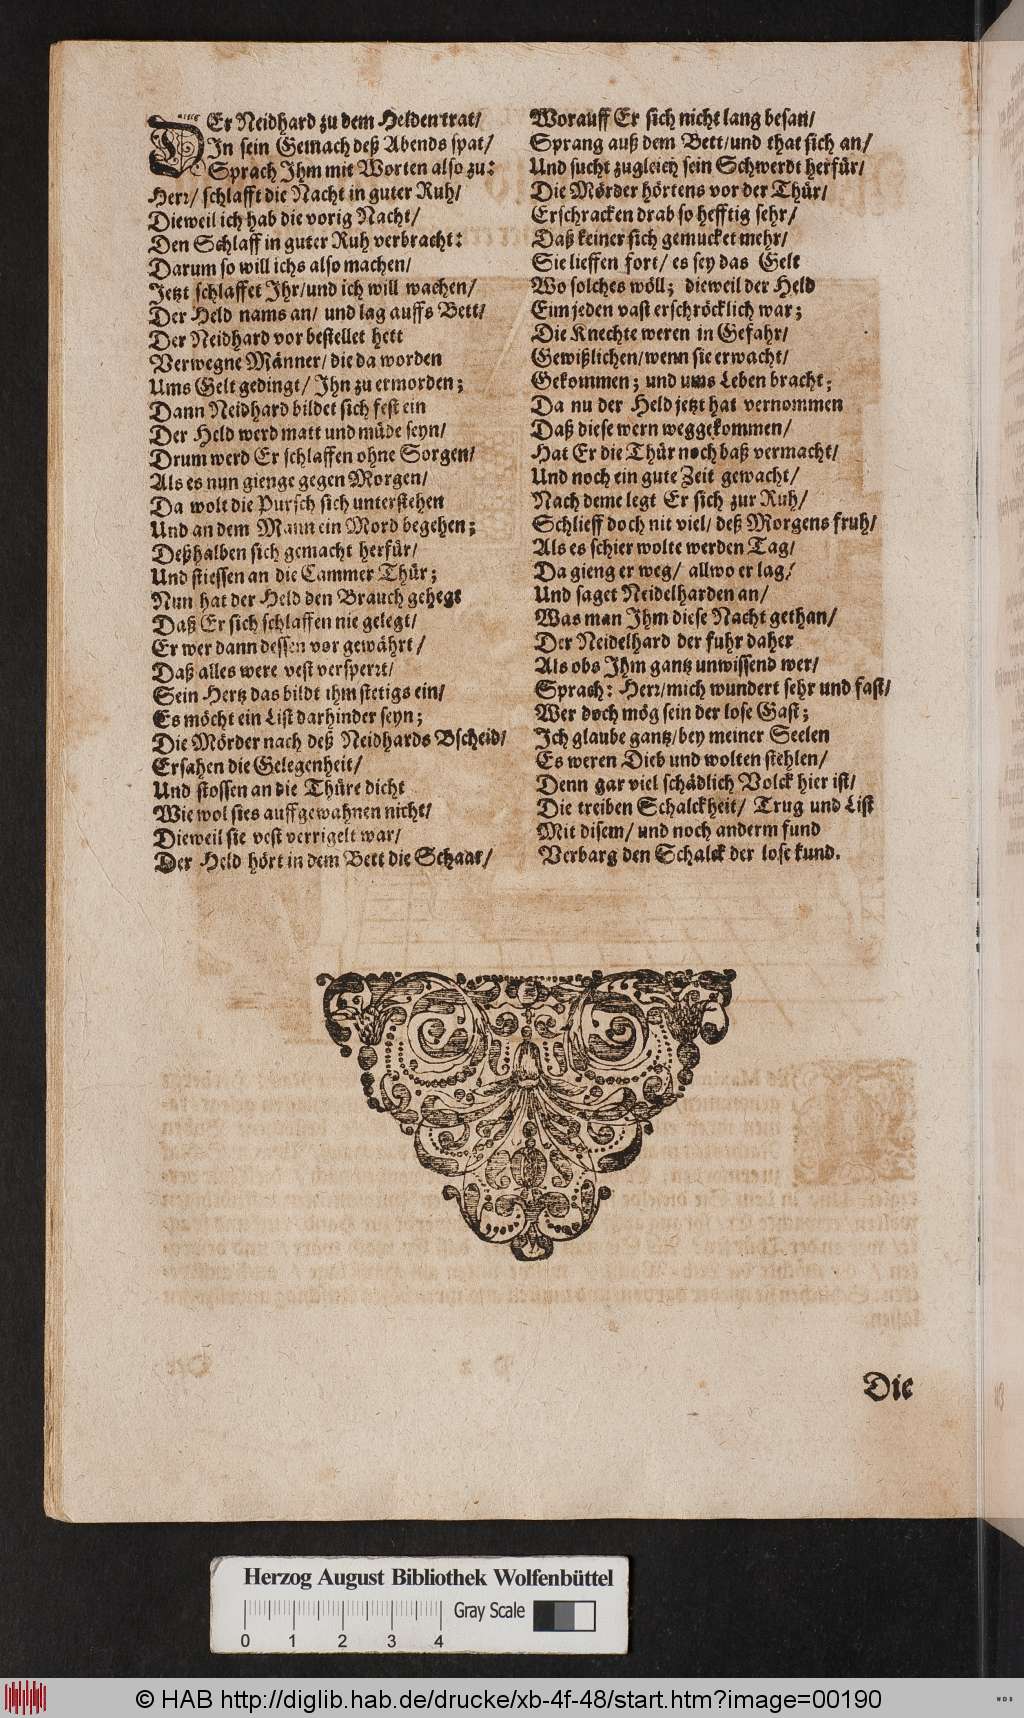 DEr Neidhard zu dem Helden trat/
In sein Gemach deß Abends spat/
Sprach Ihm mit Worten also zu:
Herr/ schlafft die Nacht in guter Ruh/
Dieweil ich hab die vorig Nacht/
Den Schlaff in guter Ruh verbracht:
Darum so will ichs also machen/
Jetzt schlaffet Ihr/und ich will wachen/
Der Held nams an/ und lag auffs Bett/
Der Neidhard vor bestellet hett
Verwegne Männer/ die da worden
Ums Gelt gedingt/ Ihn zu ermorden;
Dann Neidhard bildet sich fest ein
Der Held werd matt und müde seyn/
Drum werd Er schlaffen ohne Sorgen/
Als es nun gienge gegen Morgen/
Da wolt die Pursch sich unterstehen
Und an dem Mann ein Mord begehen;
Deßhalben sich gemacht herfür/
Und stiessen an die Cammer Thür;
Nun hat der Held den Brauch gehegt
Daß Er sich schlaffen nie gelegt/
Er wer dann dessen vor gewährt/
Daß alles were vest versperrt/
Sein Hertz das bildt ihm stetigs ein/
Es möcht ein List darhinder seyn;
Die Mörder nach deß Neidhards Bscheid/
Ersahen die Gelegenheit/
Und stossen an die Thüre dicht
Wie wol sies auffgewahnen nicht/
Dieweil sie vest verrigelt war/
Der Held hört in dem Bett die Schaar/
Worauff Er sich nicht lang besan/
Sprang auß dem Bett/und that sich an/
Und sucht zugleich sein Schwerdt herfür/
Die Mörder hörtens vor der Thür/
Erschracken drab so hefftig sehr/
Daß keiner sich gemucket mehr/
Sie lieffen fort/ es sey das Gelt
Wo solches wöll; dieweil der Held
Eim jeden vast erschröcklich war;
Die Knechte weren in Gefahr/
Gewißlichen/wenn sie erwacht/
Gekommen; und ums Leben bracht;
Da nu der Held jetzt hat vernommen
Daß diese wern weggekommen/
Hat Er die Thür noch baß vermacht/
Und noch ein gute Zeit gewacht/
Nach deme legt Er sich zur Ruh/
Schlieff doch nit viel/ deß Morgens fruh/
Als es schier wolte werden Tag/
Da gieng er weg/ allwo er lag/
Und saget Neidelharden an/
Was man Ihm diese Nacht gethan/
Der Neidelhard der fuhr daher
Als obs Ihm gantz unwissend wer/
Sprach: Herr/mich wundert sehr und fast/
Wer doch mög sein der lose Gast;
Ich glaube gantz/bey meiner Seelen
Es weren Dieb und wolten stehlen/
Denn gar viel schädlich Volck hier ist/
Die treiben Schalckheit/ Trug und List
Mit disem/ und noch anderm fund
Verbarg den Schalck der lose kund.
Die
Herzog August Bibliothek Wolfenbüttel
Gray Scale
0 1 2 3 4
© HAB http://diglib.hab.de/drucke/xb-4f-48/start.htm?image=00190